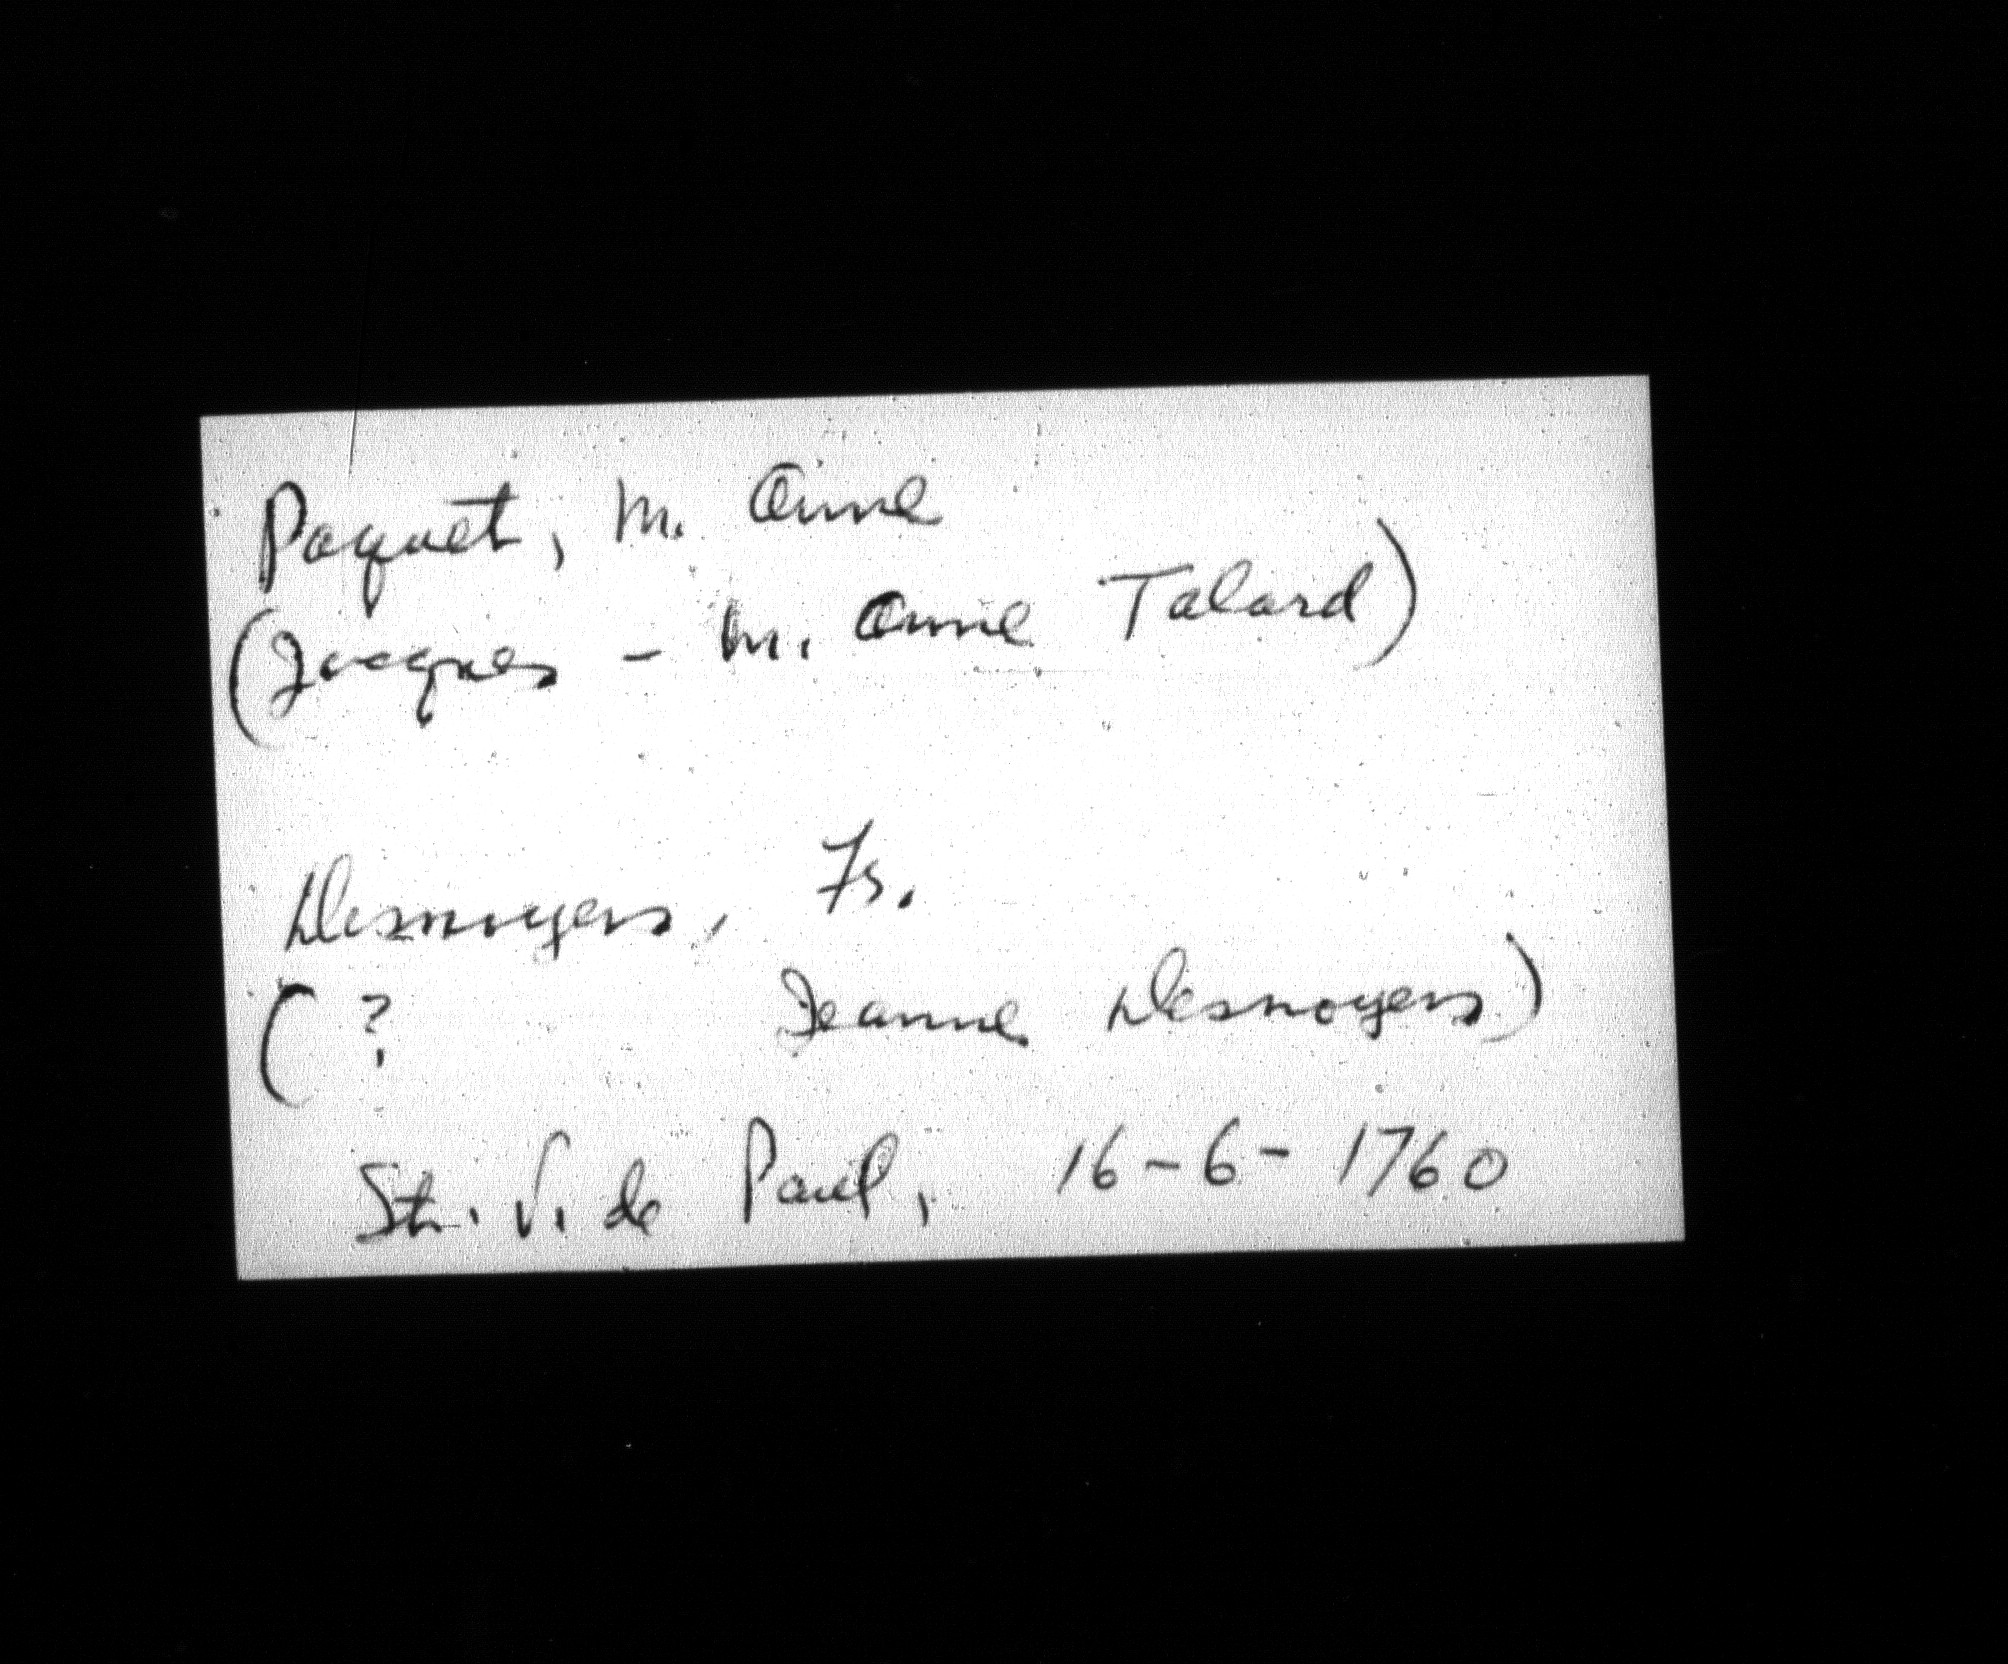 Paquet, M. Anne
(Jacques - M. Anne Talard)
Desnoyers, Fs.
( ? Jeanne Desnoyers)
St. V. de Paul, 16-6-1760